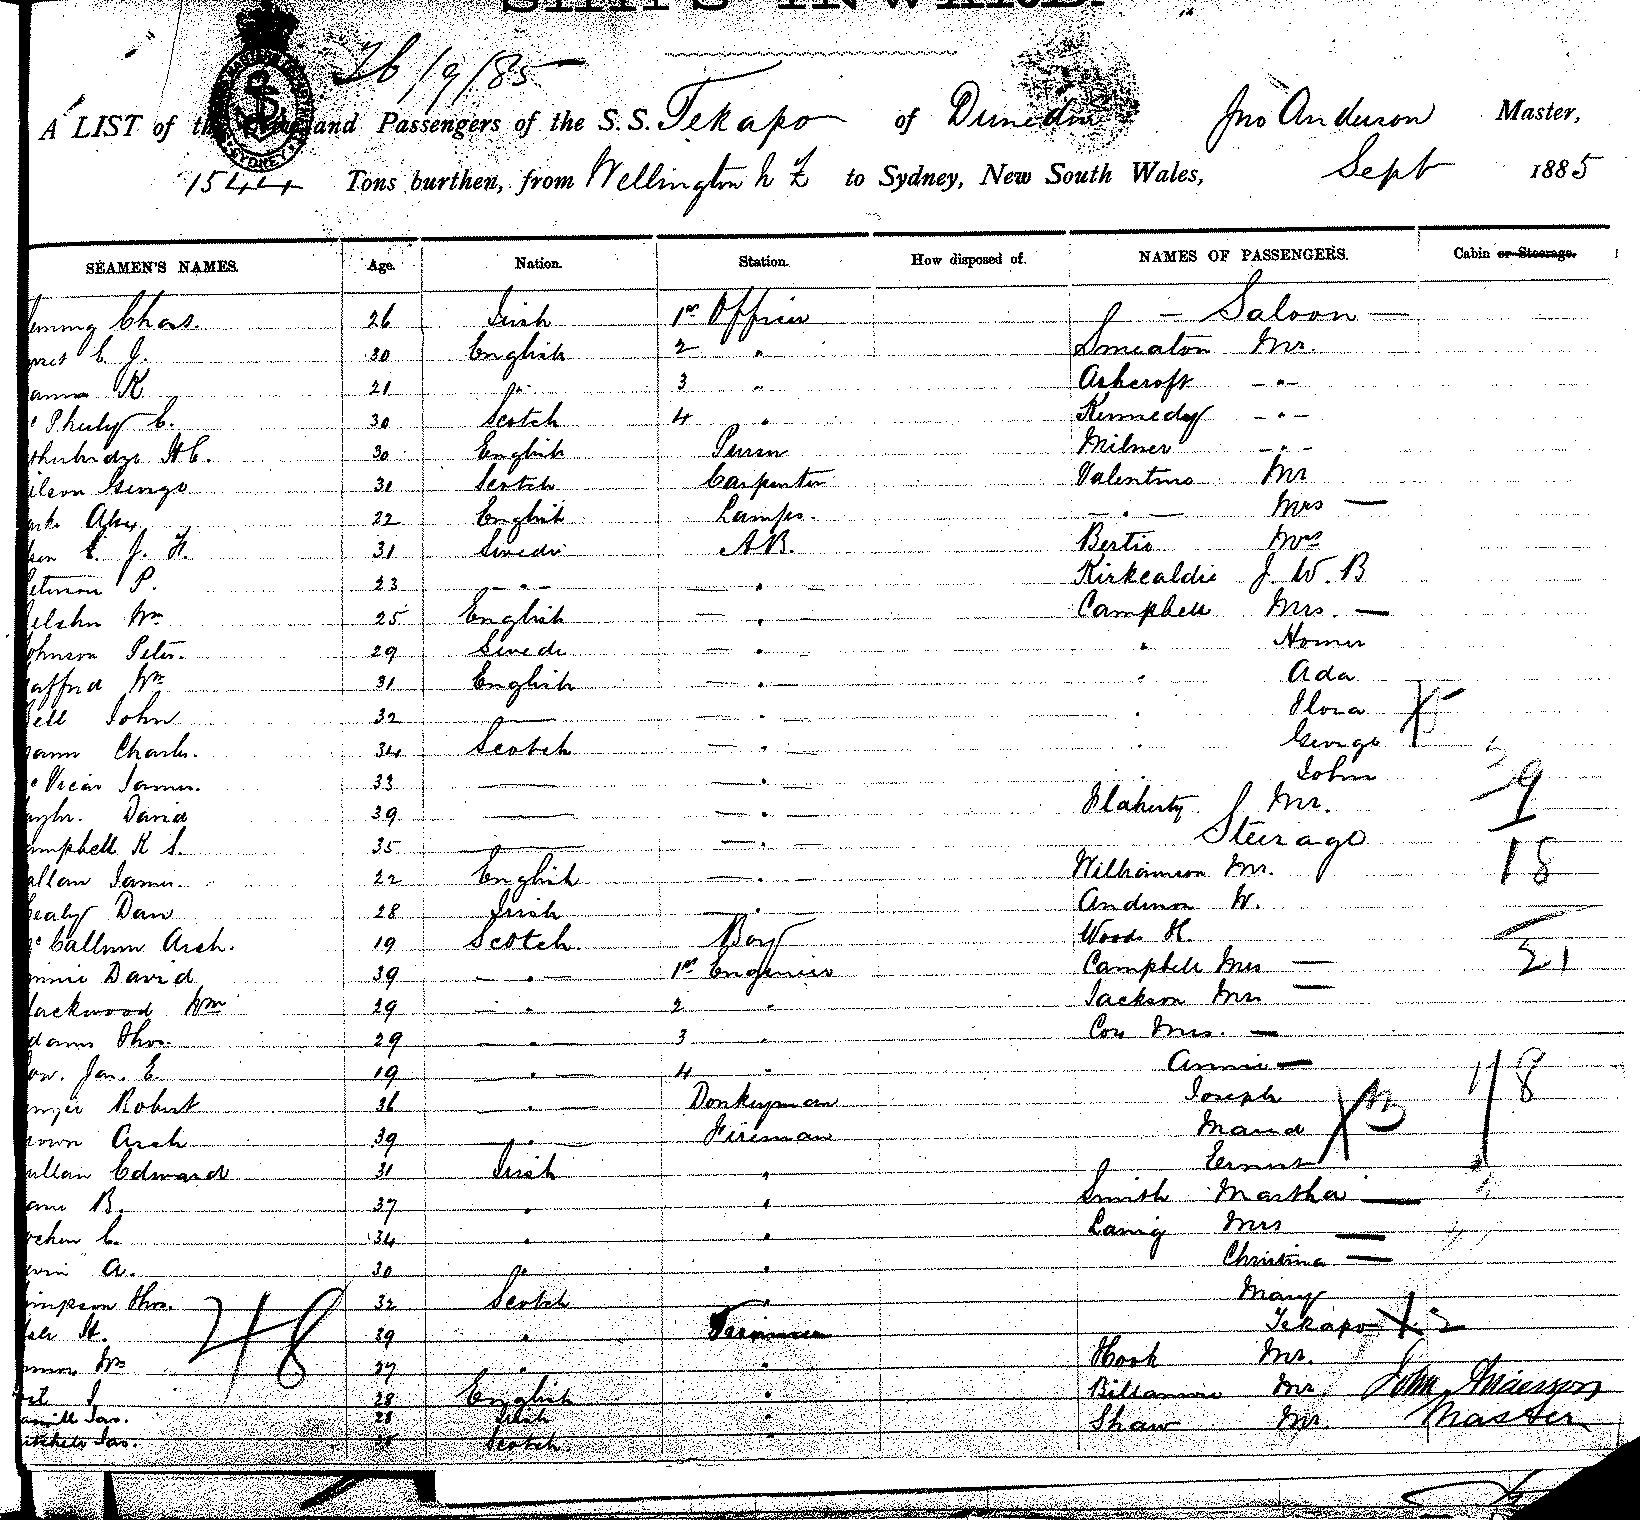 26/9/85
A LIST of the and Passengers of the S.S. Tekapo of Dunedin Jno Anderson Master,
1544 Tons burthen, from Wellington N Z to Sydney, New South Wales, Sept 1885
SEAMEN'S NAMES. Age. Nation. Station. How disposed of. NAMES OF PASSENGERS. Cabin or Steerage.
Chas. 26 Irish 1st Officer - Saloon -
E. J. 30 English 2 " Smeaton Mr.
K 21 " 3 " Ashcroft - " -
C. 30 Scotch 4 " Kennedy - " -
H C. 30 English Purser Milner - " -
ilson George 31 Scotch Carpenter Valentine Mr
Alex. 22 English Lamps. - " - Mrs -
31 Swede A B. Bertie Mrs
eterson P. 23 - " - - " - Kirkcaldie J. W. B
Wm 25 English - " - Campbell Mrs. -
ohnson Peter. 29 Swede - " - " Homer
afford Wm 31 English - " - " Ada
ell John 32 - - " - " Flora X 5
ann Charles. 34 Scotch - " - " George
c Vicar James. 33 - - " - " John 9
aylor. David 39 - - " - Flaherty Mr.
ampbell K S. 35 - - " - Steerage
allan James. 22 English - " - Williamson Mr. 18
ealy Dan 28 Irish - " - Anderson W.
c Callum Arch. 19 Scotch. Boy Woods H.
innie David 39 - " - 1st Engineer Campbell Mrs - 21
lackwood Wm 29 - " - 2 " Jackson Mrs -
dams Thos. 29 - " - 3 " Cox Mrs. -
ow. Jas. E. 19 - " - 4 " Annie -
Robert 36 - " - Donkeyman Joseph 1/8
rown Arch 39 - " - Fireman Maud X 3
ullan Edward 31 Irish " Ernest
B. 37 " " Smith Martha -
C. 34 " " Mrs -
A. 30 " " Christina -
impson Thos. 32 Scotch " Mary
H. 39 " Trimmer Tekapo X 2
48
Wm 27 " " Hook Mr.
28 English " Mr. John Anderson
Jas. 28 Irish " Shaw Mr. Master
itchell Jas. Scotch "